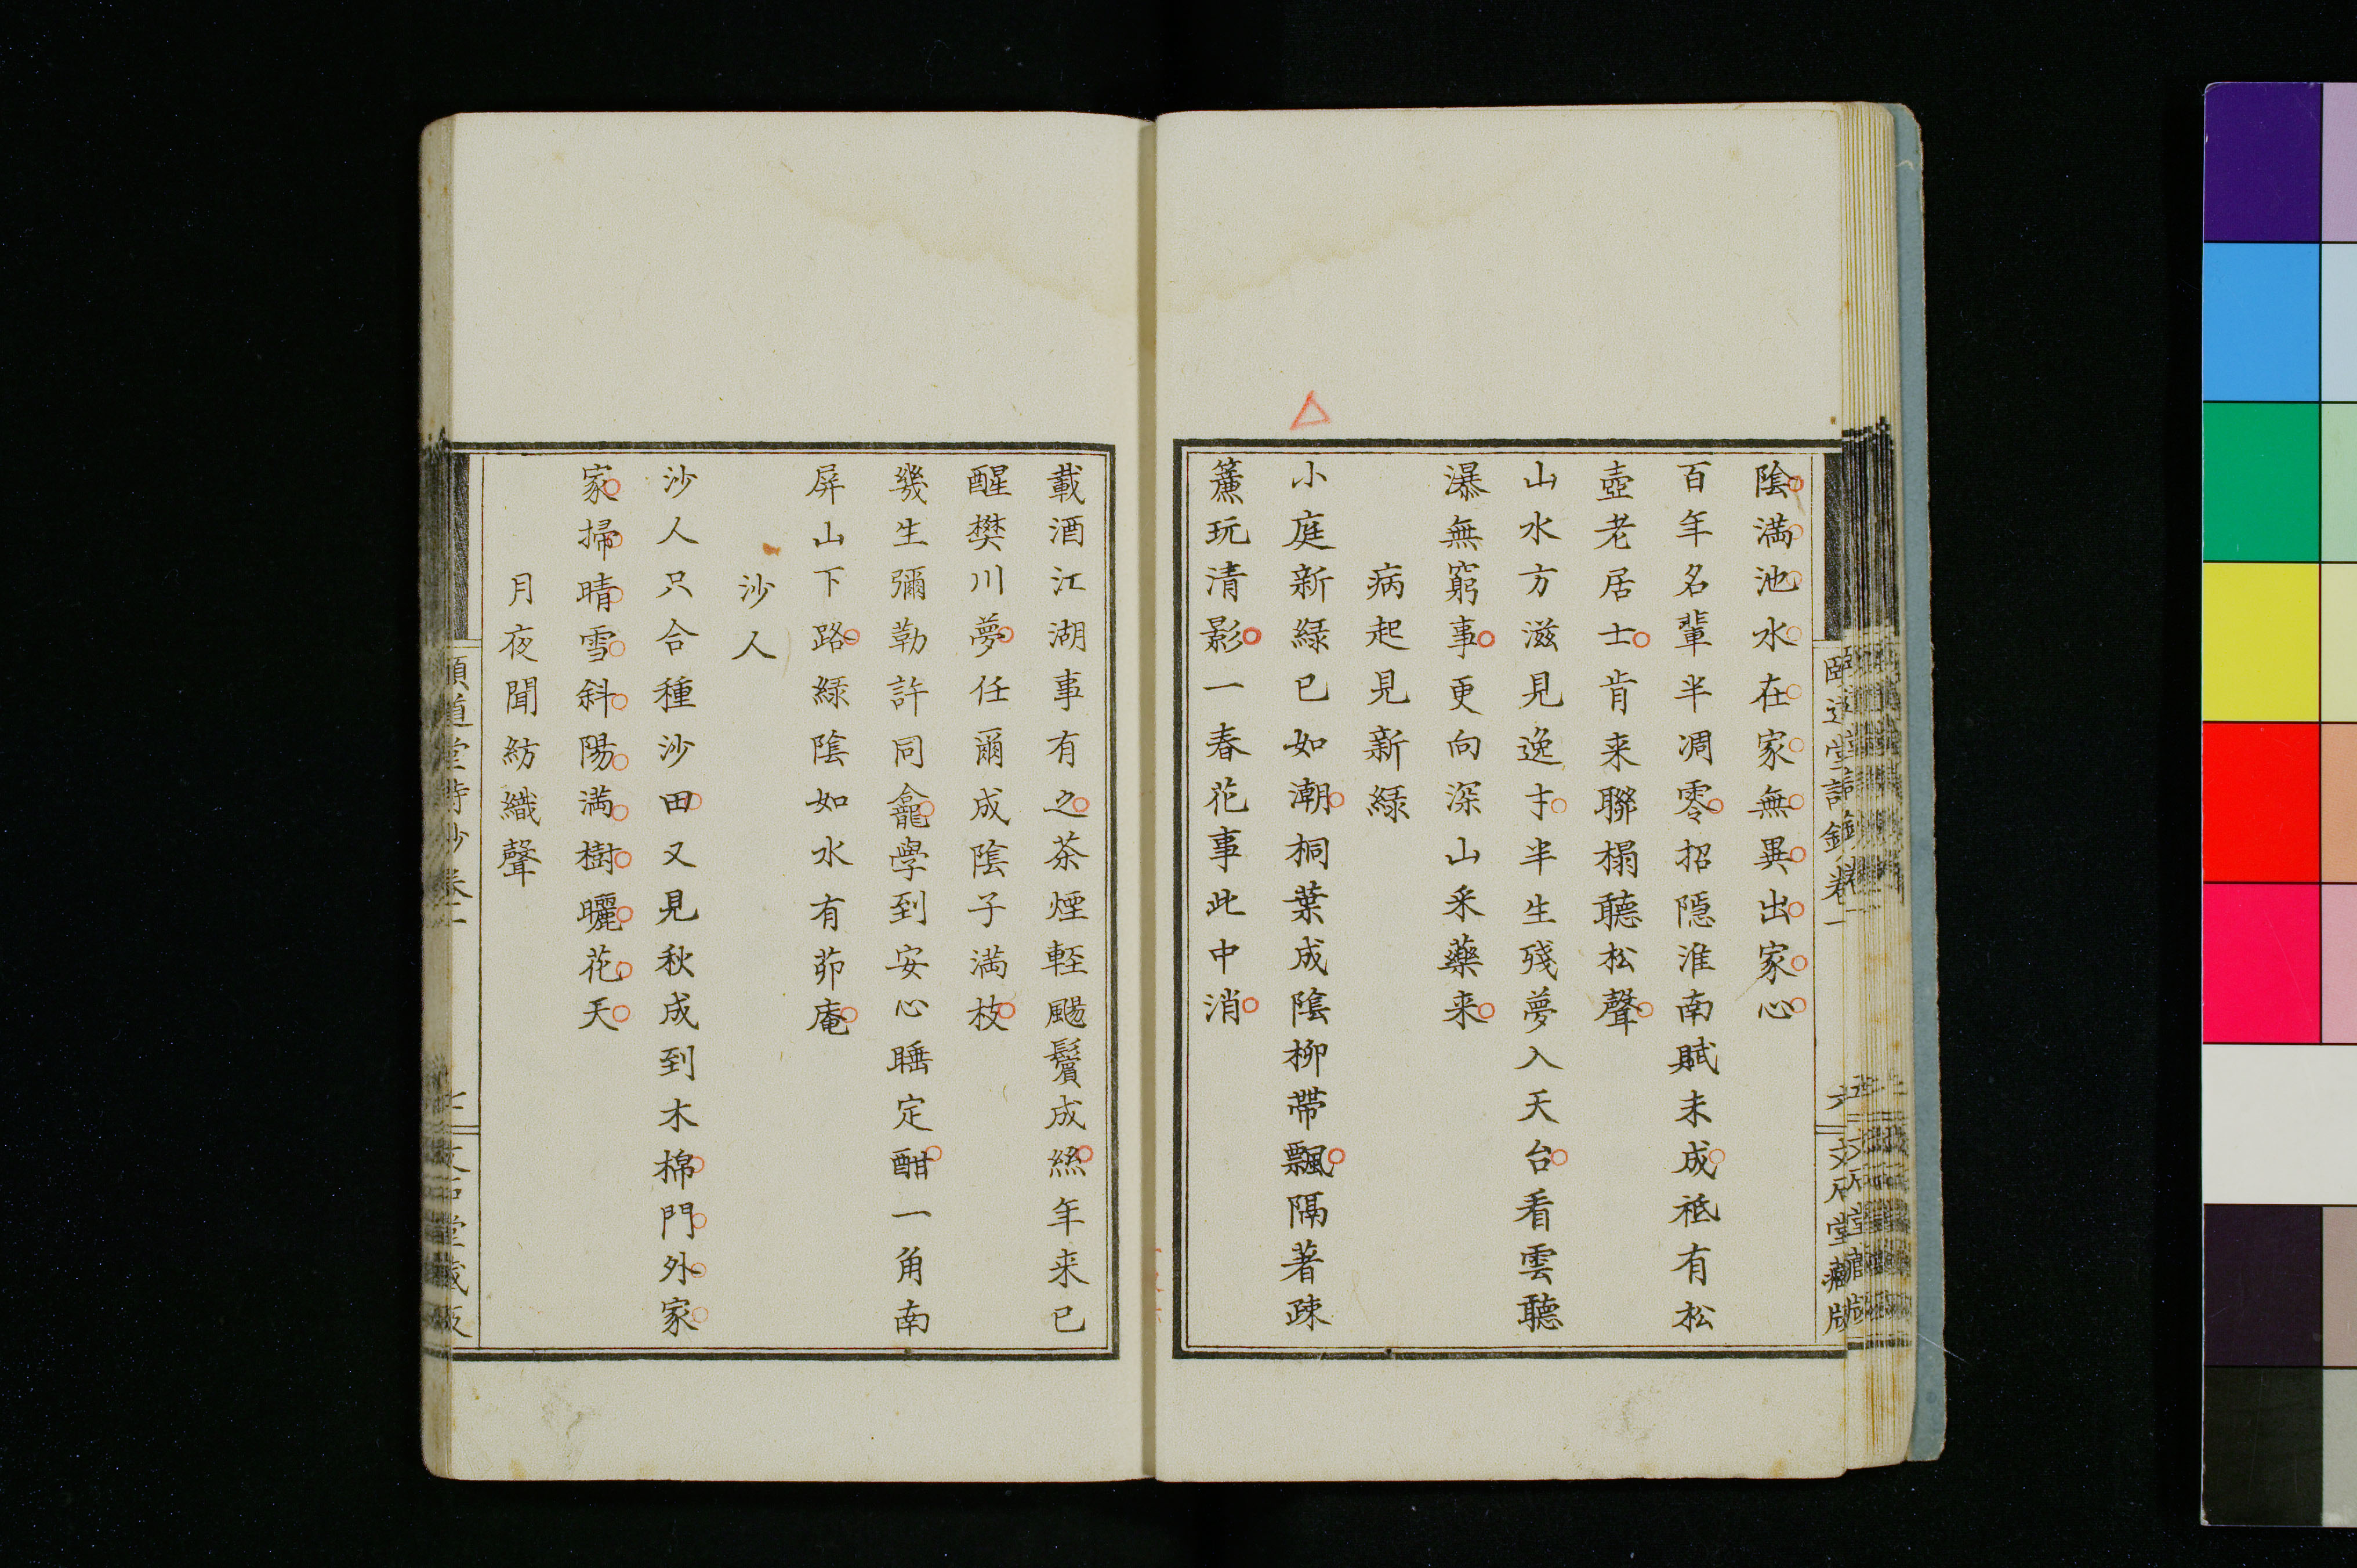 陰満池水在家無異出家心
百年名輩半凋零招隱淮南賦未成祗有松
壺老居士肯来聯榻聽松聲
山水方滋見逸才半生殘夢入天台看雲聽
瀑無窮事更向深山采藥来
病起見新緑
小庭新緑已如潮桐葉成陰柳帶飄隔著疎
簾玩清影一春花事此中消
載酒江湖事有之茶煙輕颺鬢成絲年来已
醒樊川夢任爾成陰子満枝
幾生彌勒許同龕學到安心睡定酣一角南
屏山下路緑陰如水有茆庵
沙人
沙人只合種沙田又見秋成到木棉門外家
家掃晴雪斜陽満樹曬花天
月夜聞紡織聲
頤道堂詩鈔卷一